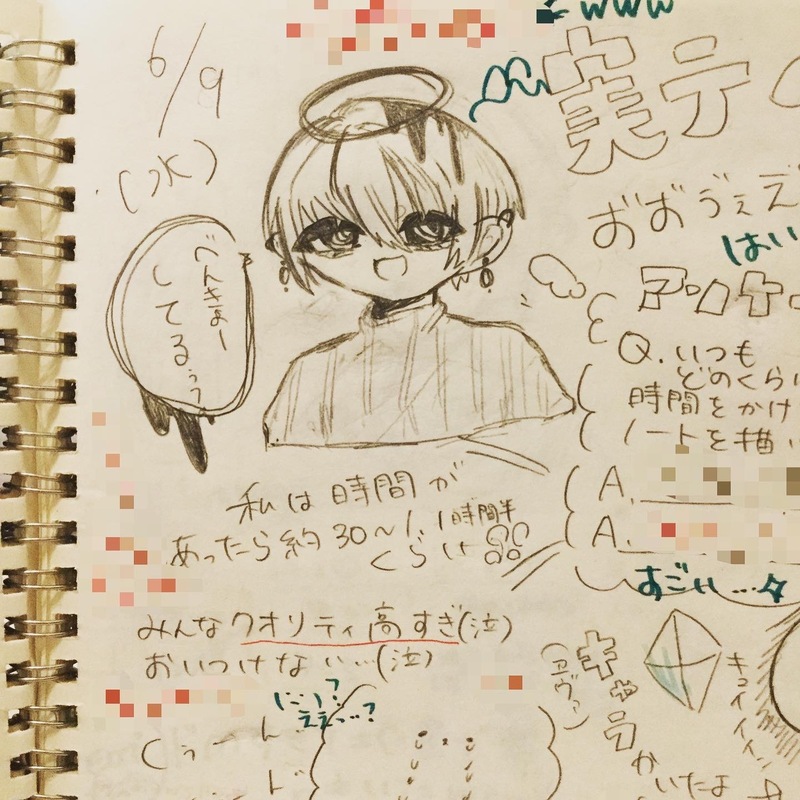 www
6/9
(水)
べんきょー
してるぅぅ
実テ
おおぅぇえ
はい
アンケ
Q. いつも
どのくらい
時間をかけ
ノートを描い
A.
A.
私は時間が
あったら約30〜1.1時間半
くらい
すごい…☆
みんなクオリティ高すぎ(泣)
おいつけない…(泣)
キャラ
かいたよ
キュイイイン
ええっ…?